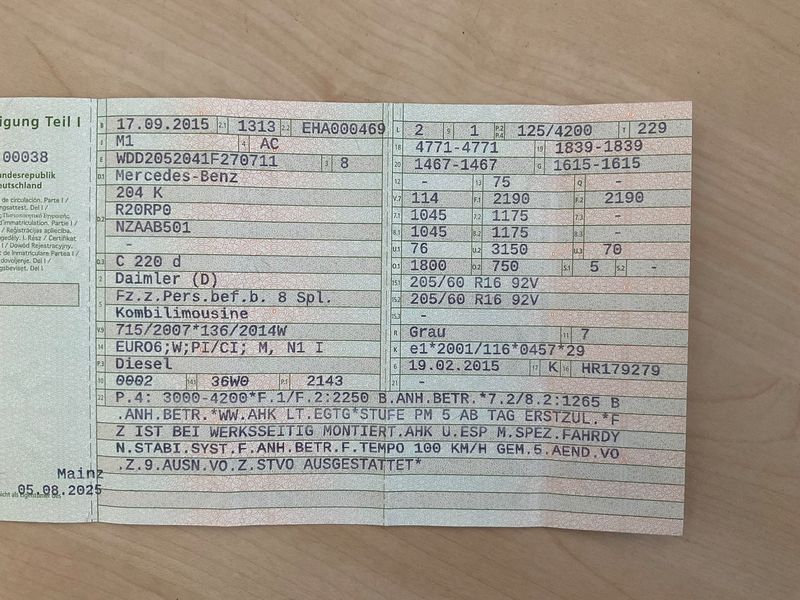 igung Teil I
00038
undesrepublik
eutschland
de circulación. Parte I /
ngsattest. Del I /
d'immatriculation. Partie I /
/ Reģistrācijas apliecība.
gedély. I. Rész / Čertifikat
I / Dowód Rejestracyjny.
de Inmatriculare Partea I /
dovoljenje. Del I /
gsbeviset. Del I
Mainz
05.08.2025
B 17.09.2015 2.1 1313 2.2 EHA000469
J M1 4 AC
E WDD2052041F270711 3 8
D.1 Mercedes-Benz
204 K
D.2 R20RP0
NZAAB501
-
D.3 C 220 d
2 Daimler (D)
5 Fz.z.Pers.bef.b. 8 Spl.
Kombilimousine
V.9 715/2007*136/2014W
14 EURO6;W;PI/CI; M, N1 I
P.3 Diesel
10 0002 14.1 36W0 P.1 2143
L 2 9 1 P.2 P.4 125/4200 T 229
18 4771-4771 19 1839-1839
20 1467-1467 G 1615-1615
12 - 13 75 Q -
V.7 114 F.1 2190 F.2 2190
7.1 1045 7.2 1175 7.3 -
8.1 1045 8.2 1175 8.3 -
U.1 76 U.2 3150 U.3 70
O.1 1800 O.2 750 S.1 5 S.2 -
15.1 205/60 R16 92V
15.2 205/60 R16 92V
15.3 -
R Grau 11 7
K e1*2001/116*0457*29
6 19.02.2015 17 K 16 HR179279
21 -
22 P.4: 3000-4200*F.1/F.2:2250 B.ANH.BETR.*7.2/8.2:1265 B
.ANH.BETR.*WW.AHK LT.EGTG*STUFE PM 5 AB TAG ERSTZUL.*F
Z IST BEI WERKSSEITIG MONTIERT.AHK U.ESP M.SPEZ.FAHRDY
N.STABI.SYST.F.ANH.BETR.F.TEMPO 100 KM/H GEM.5.AEND.VO
.Z.9.AUSN.VO.Z.STVO AUSGESTATTET*